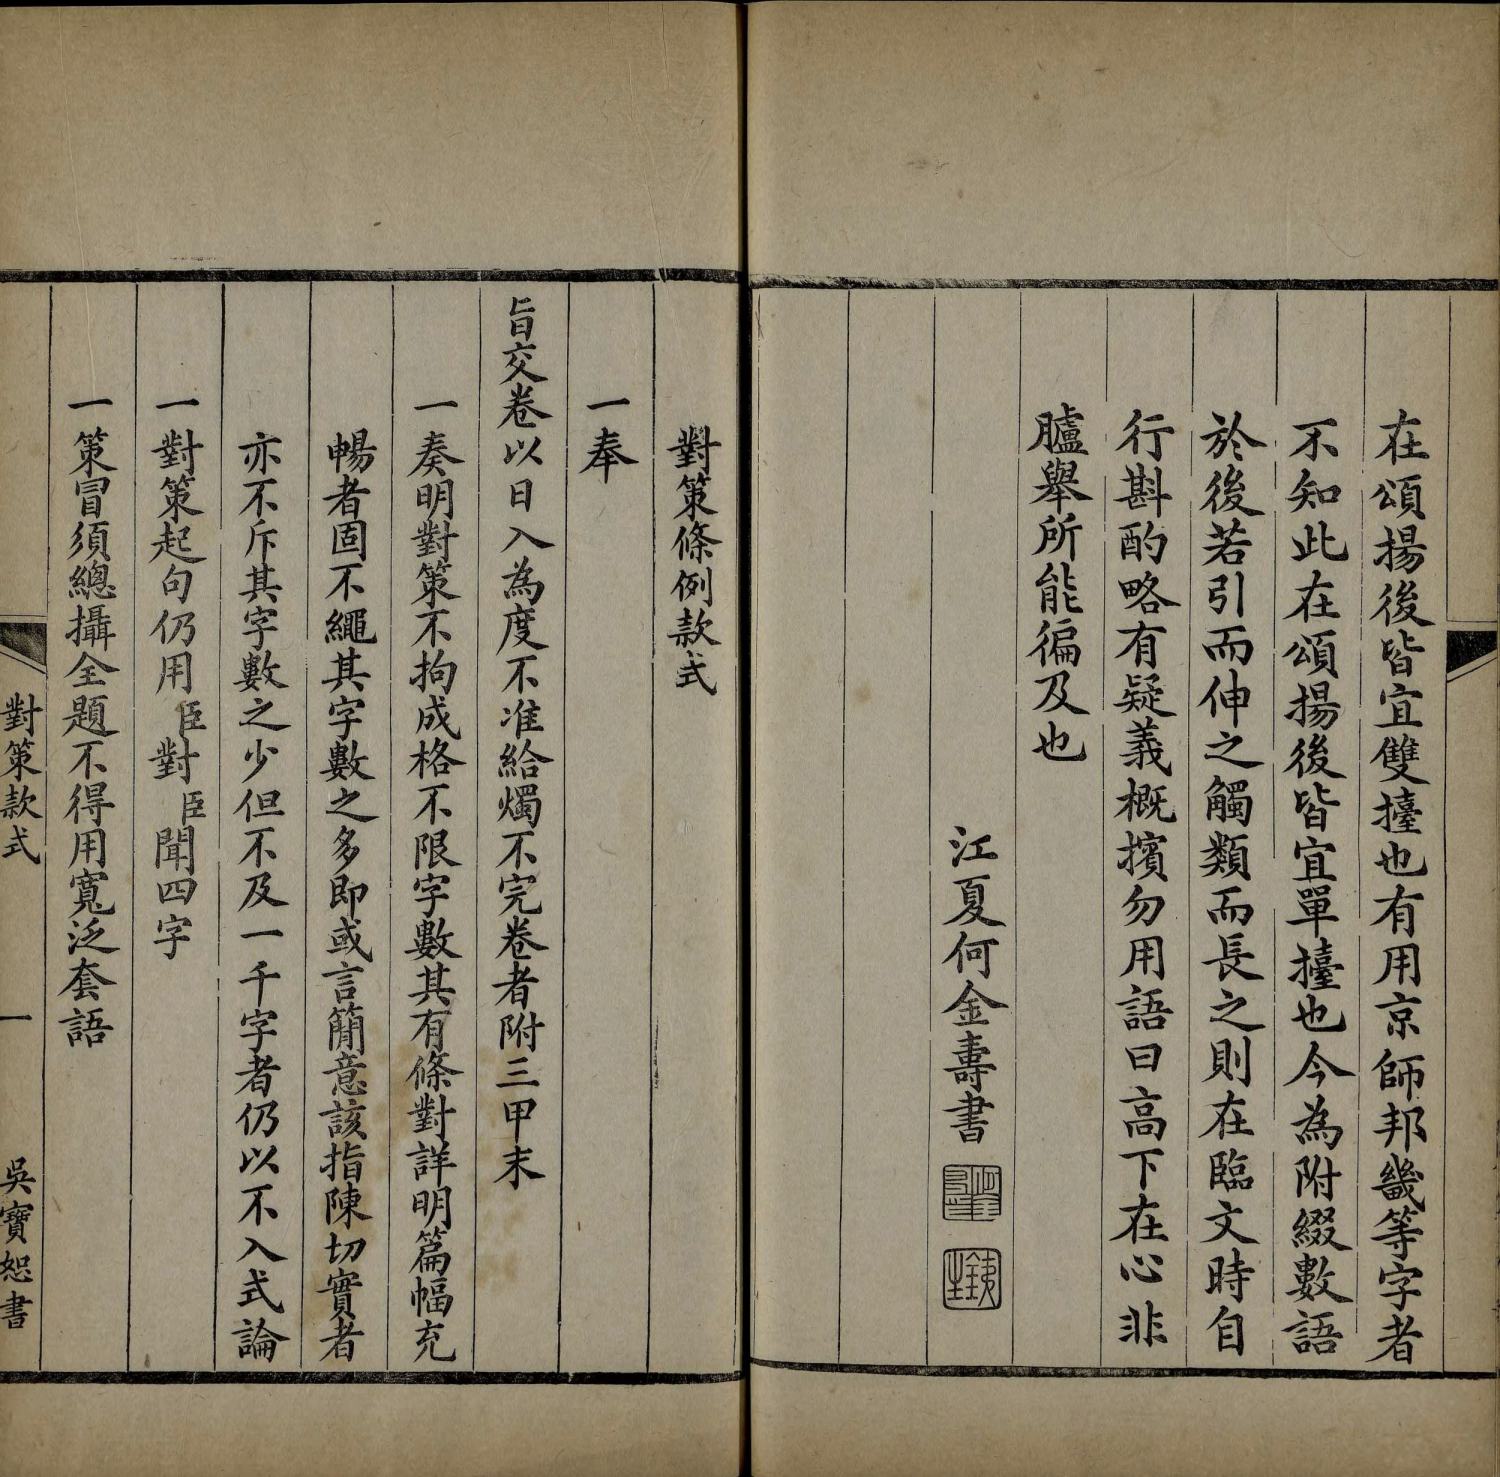 在頌揚後皆宜雙擡也有用京師邦畿等字者
不知此在頌揚後皆宜單擡也今為附綴數語
於後若引而伸之觸類而長之則在臨文時自
行斟酌略有疑義概擯勿用語曰高下在心非
臚舉所能徧及也
江夏何金壽書
對策條例款式
一奉
旨交卷以日入為度不准給燭不完卷者附三甲末
一奏明對策不拘成格不限字數其有條對詳明篇幅充
暢者固不繩其字數之多即或言簡意該指陳切實者
亦不斥其字數之少但不及一千字者仍以不入式論
一對策起句仍用臣對臣聞四字
一策冒須總攝全題不得用寬泛套語
對策款式 一 吳寶恕書